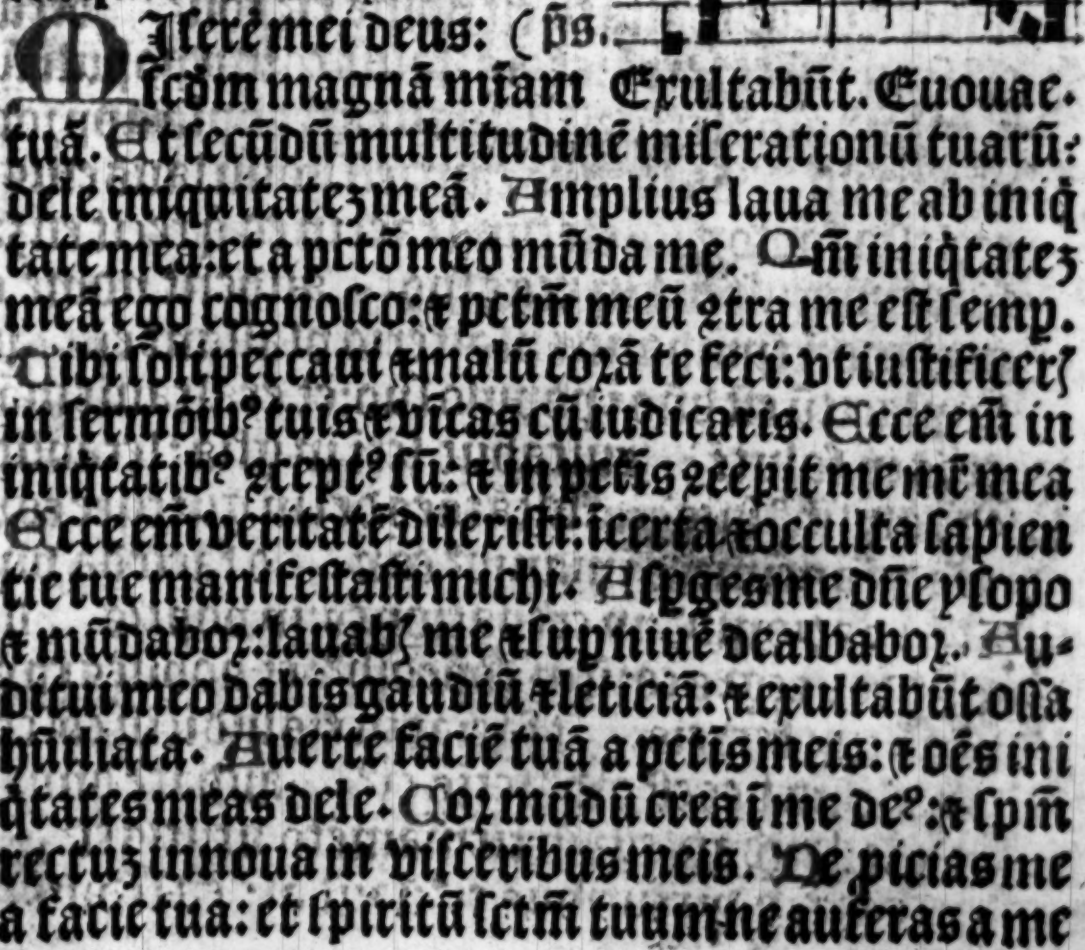 Miserē mei deus: (p̄s.
scd̄m magnā mīam Exultabūt. Euouae.
tuā. Et secūdū multitudinē miserationū tuarū:
dele iniquitatez meā. Amplius laua me ab iniq̇
tate mea: et a pctō meo mūda me. Qm̄ iniq̇tatez
meā ego cognosco: ⁊ pctm̄ meū ꝯtra me est semꝑ.
Tibi soli peccaui ⁊ malū corā te feci: vt iustificerꝭ
in sermōibꝰ tuis ⁊ vīcas cū iudicaris. Ecce em̄ in
iniq̇tatibꝰ ꝯceptꝰ sū: ⁊ in pctīs ꝯcepit me mr̄ mea
Ecce em̄ veritatē dilexisti: īcerta ⁊ occulta sapien
tie tue manifestasti michi. Asꝑges me dn̄e ysopo
⁊ mūdabor: lauabꝭ me ⁊ suꝑ niuē dealbabor. Au⸗
ditui meo dabis gaudiū ⁊ leticiā: ⁊ exultabūt ossa
hūiliata. Auerte faciē tuā a pctīs meis: ⁊ oēs ini
q̇tates meas dele. Cor mūdū crea ī me deꝰ: ⁊ spm̄
rectuz innoua in visceribus meis. Ne ꝓicias me
a facie tua: et spiritū sctm̄ tuum ne auferas a me